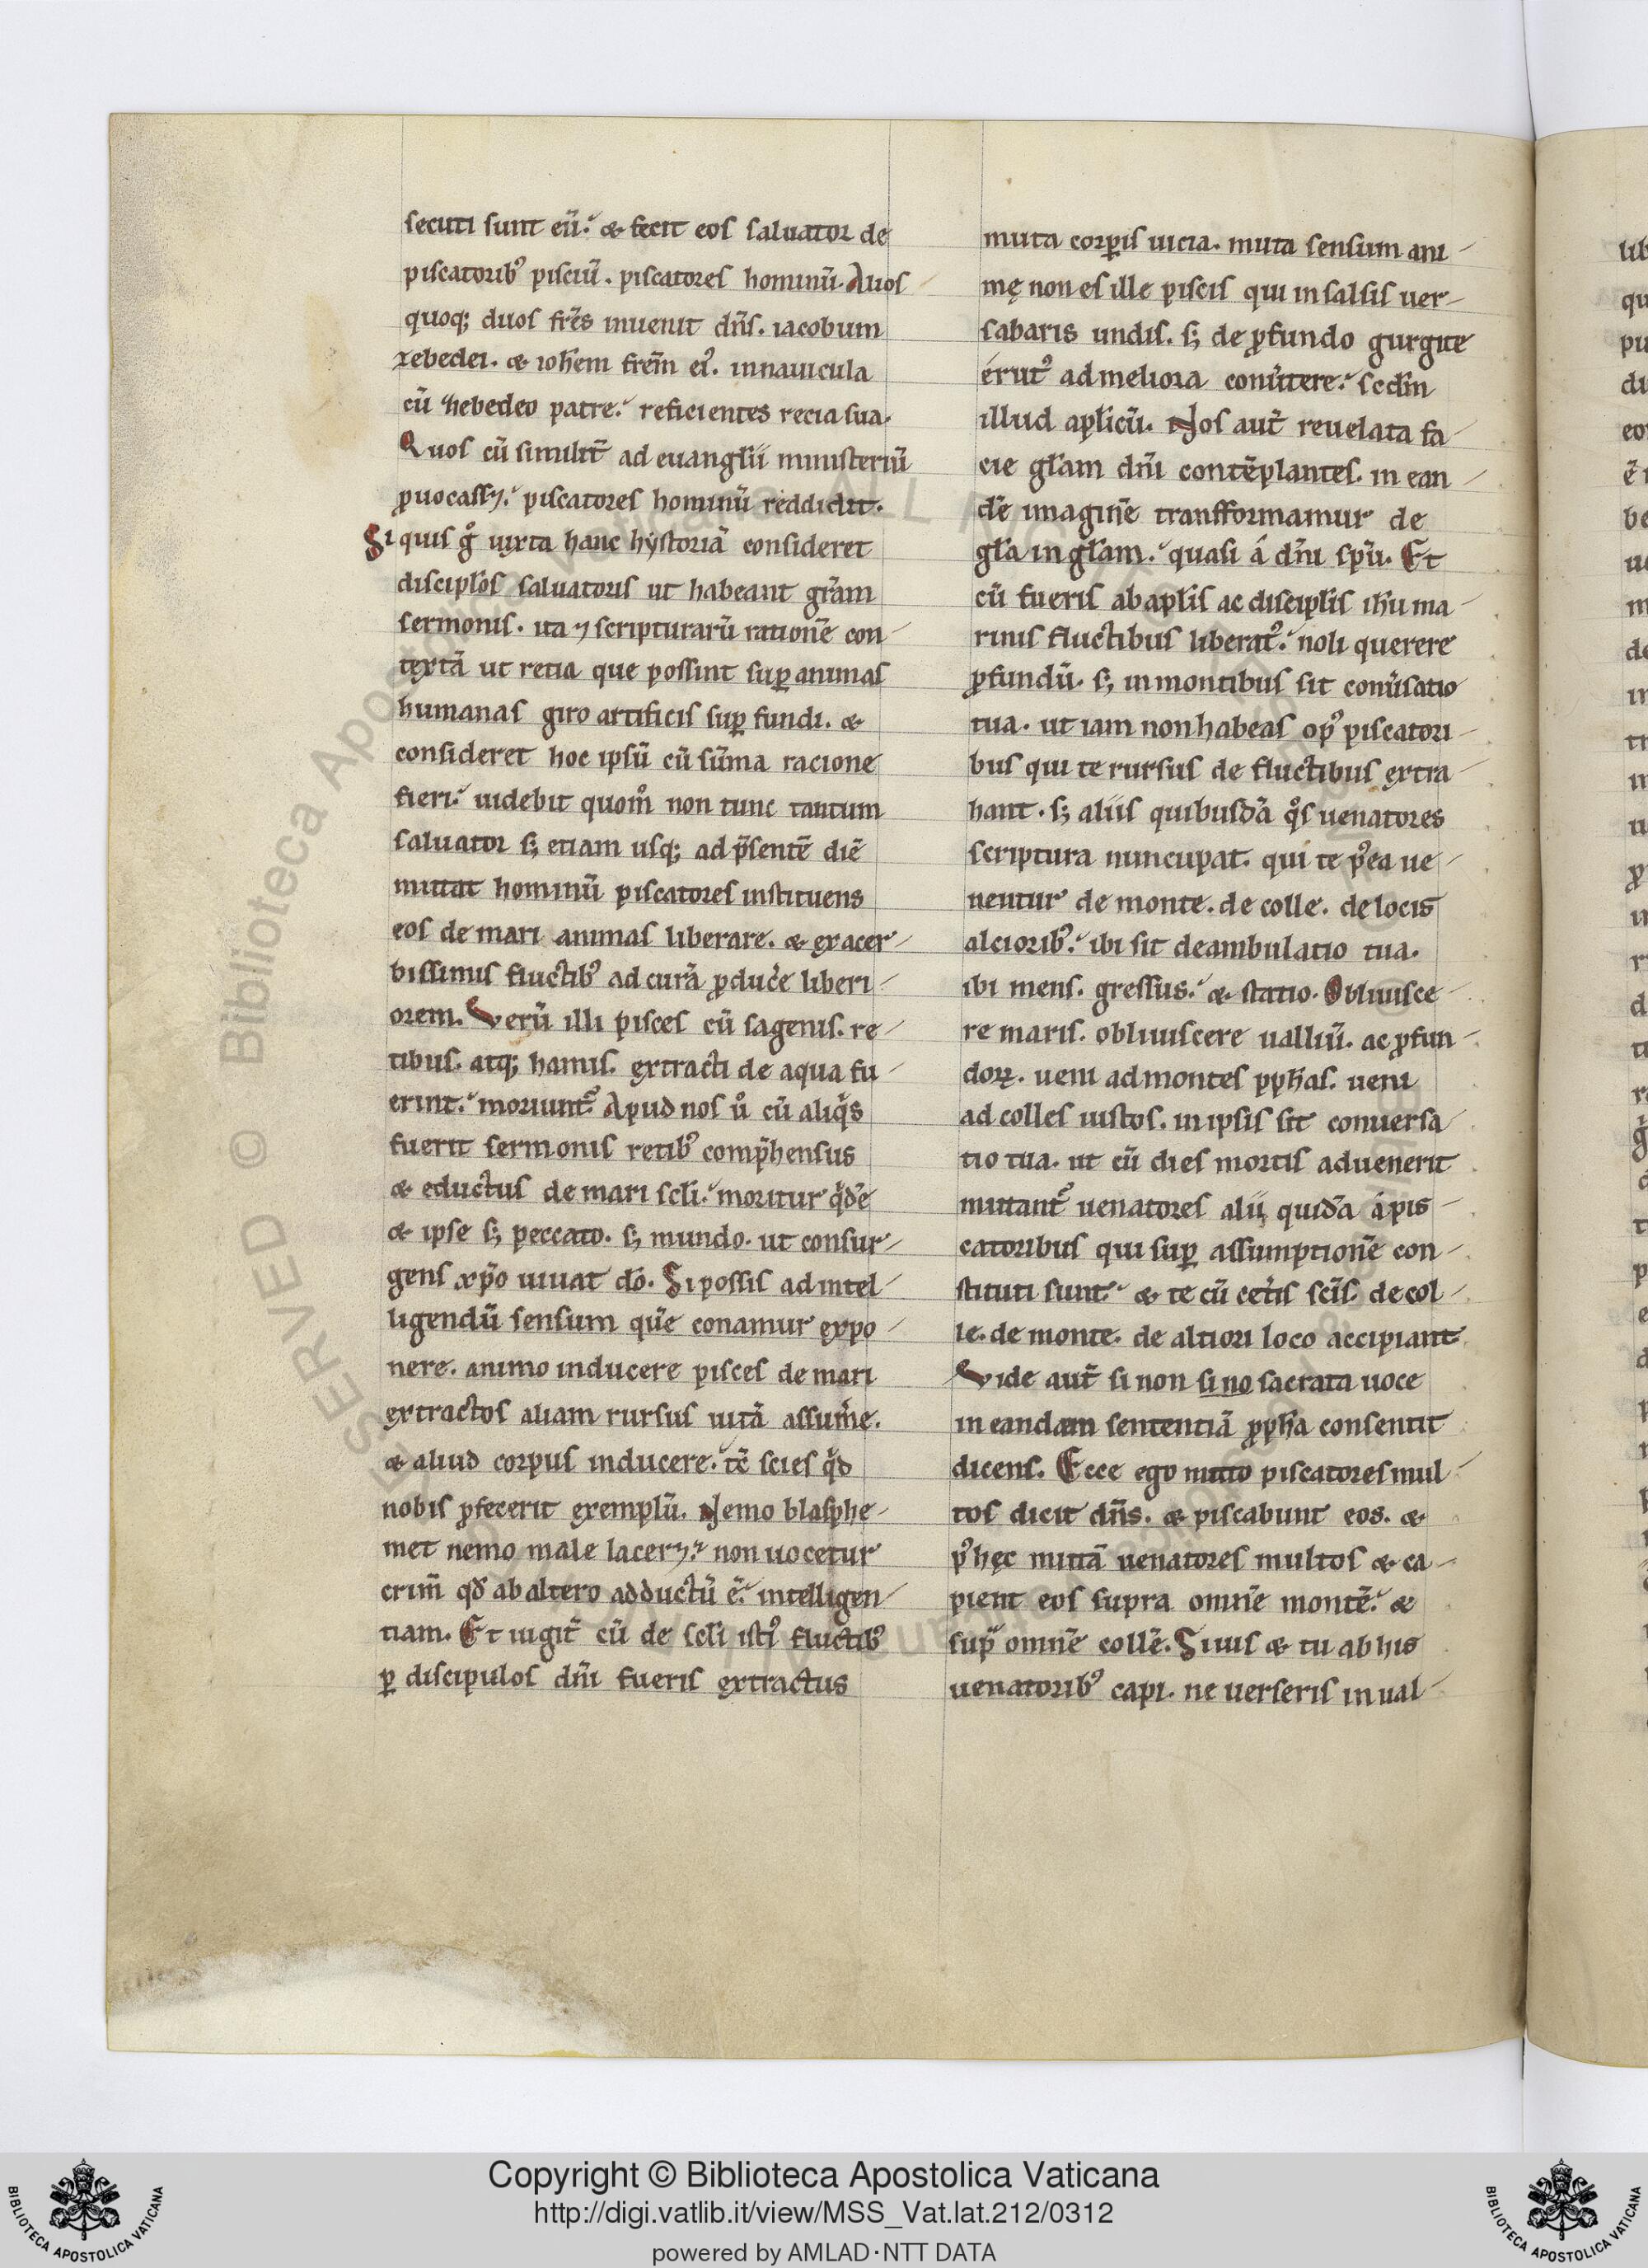 secuti sunt eũ. ⁊ fecit eos saluator de
piscatorib᷒ pisciũ. piscatores hominũ. Aluos
quoq; duos fr̃es inuenit dñs. iacobum
zebedei. ⁊ ioh̃em frem̃ ei᷒. innauicula
cũ zebedeo patre. reficientes recia sua.
Quos cũ similit̃ ad euanglii ministeriũ
ꝓuocass⁊. piscatores hominũ reddidit.
Si quis gͦ iuxta hanc hystoriã consideret
discipl̃os saluatoris ut habeant gr̃am
sermonis. ita ⁊ scripturarũ rationẽ con
textã ut retia que possint suꝑ animas
humanas giro artificis suꝑ fundi. ⁊
consideret hoc ipsũ cũ sũma racione
fieri. uidebit quom̊ non tunc tantum
saluator s; etiam usq; ad p̃sentẽ diẽ
mittat hominũ piscatores instituens
eos de mari animas liberare. ⁊ exacer
bissimis fluctib᷒ ad curã ꝓducẽe liberi
orem. Verũ illi pisces cũ sagenis. re
tibus. atq; hamis. extracti de aqua fu
erint. moriunt᷒. Apud nos u̾ cũ aliqͥs
fuerit sermonis retib᷒ comp̃hensus
⁊ eductus de mari scl̃i. moritur qͥdẽ
⁊ ipse s; peccato. s; mundo. ut consur
gens xp̃o uiuat dõ. Si possis ad intel
ligendũ sensum quẽ conamur expo
nere. animo inducere pisces de mari
extractos aliam rursus uitã assum̃e.
⁊ aliud corpus inducere. tc̃ scies qͥd
nobis ꝓfecerit exemplũ. Nemo blasphe
met nemo male lacer⁊. non uocetur
crim̃ qđ ab altero adductũ ẽ. intelligen
tiam. Et iugit̃ cũ de scl̃i isti᷒ fluctib᷒
ꝑ discipulos dñi fueris extractus
muta corꝑis uicia. muta sensum ani
mę non es ille piscis qui in salsis uer
sabaris undis. s; de ꝓfundo gurgite
érut᷒ ad meliora conũtere. scđm
illud apl̃icũ. Nos aut̃ reuelata fa
cie gl̃am dñi contẽplantes. in ean
dẽ imaginẽ transformamur de
gl̃a in gl̃am. quasi á dñi spũ. Et
cũ fueris ab apl̃is ac discipl̃is ih̃u ma
rinis fluctibus liberat᷒. noli querere
ꝓfundũ. s; in montibus sit conũsatio
tua. ut iam non habeas op᷒ piscatori
bus qui te rursus de fluctibus extra
hant. s; aliis quibusdã qͦs uenatores
scriptura nuncupat. qui te p᷒ea ue
nentur de monte. de colle. de locis
alciorib᷒. ibi sit deambulatio tua.
ibi mens. gressus. ⁊ statio. Obliuisce
re maris. obliuiscere ualliũ. ac ꝓfun
doꝝ. ueni ad montes ꝓph̃as. ueni
ad colles iustos. in ipsis sit conuersa
tio tua. ut cũ dies mortis aduenerit
mittant᷒ uenatores alii quidã á pis
catoribus qui suꝑ assumptionẽ con
stituti sunt. ⁊ te cũ cet̃is scĩs. de col
le. de monte. de altiori loco accipiant
Vide aut̃ si non si no sacrata uoce
in eandam sententiã ꝓph̃a consentit
dicens. Ecce ego mitto piscatores mul
tos dicit dñs. ⁊ piscabunt eos. ⁊
p᷒ hęc mittã uenatores multos ⁊ ca
pient eos supra omnẽ montẽ. ⁊
supͣ omnẽ collẽ. Siuis ⁊ tu ab his
uenatorib᷒ capi. ne uerseris in ual
Copyright © Biblioteca Apostolica Vaticana
http://digi.vatlib.it/view/MSS_Vat.lat.212/0312
powered by AMLAD·NTT DATA